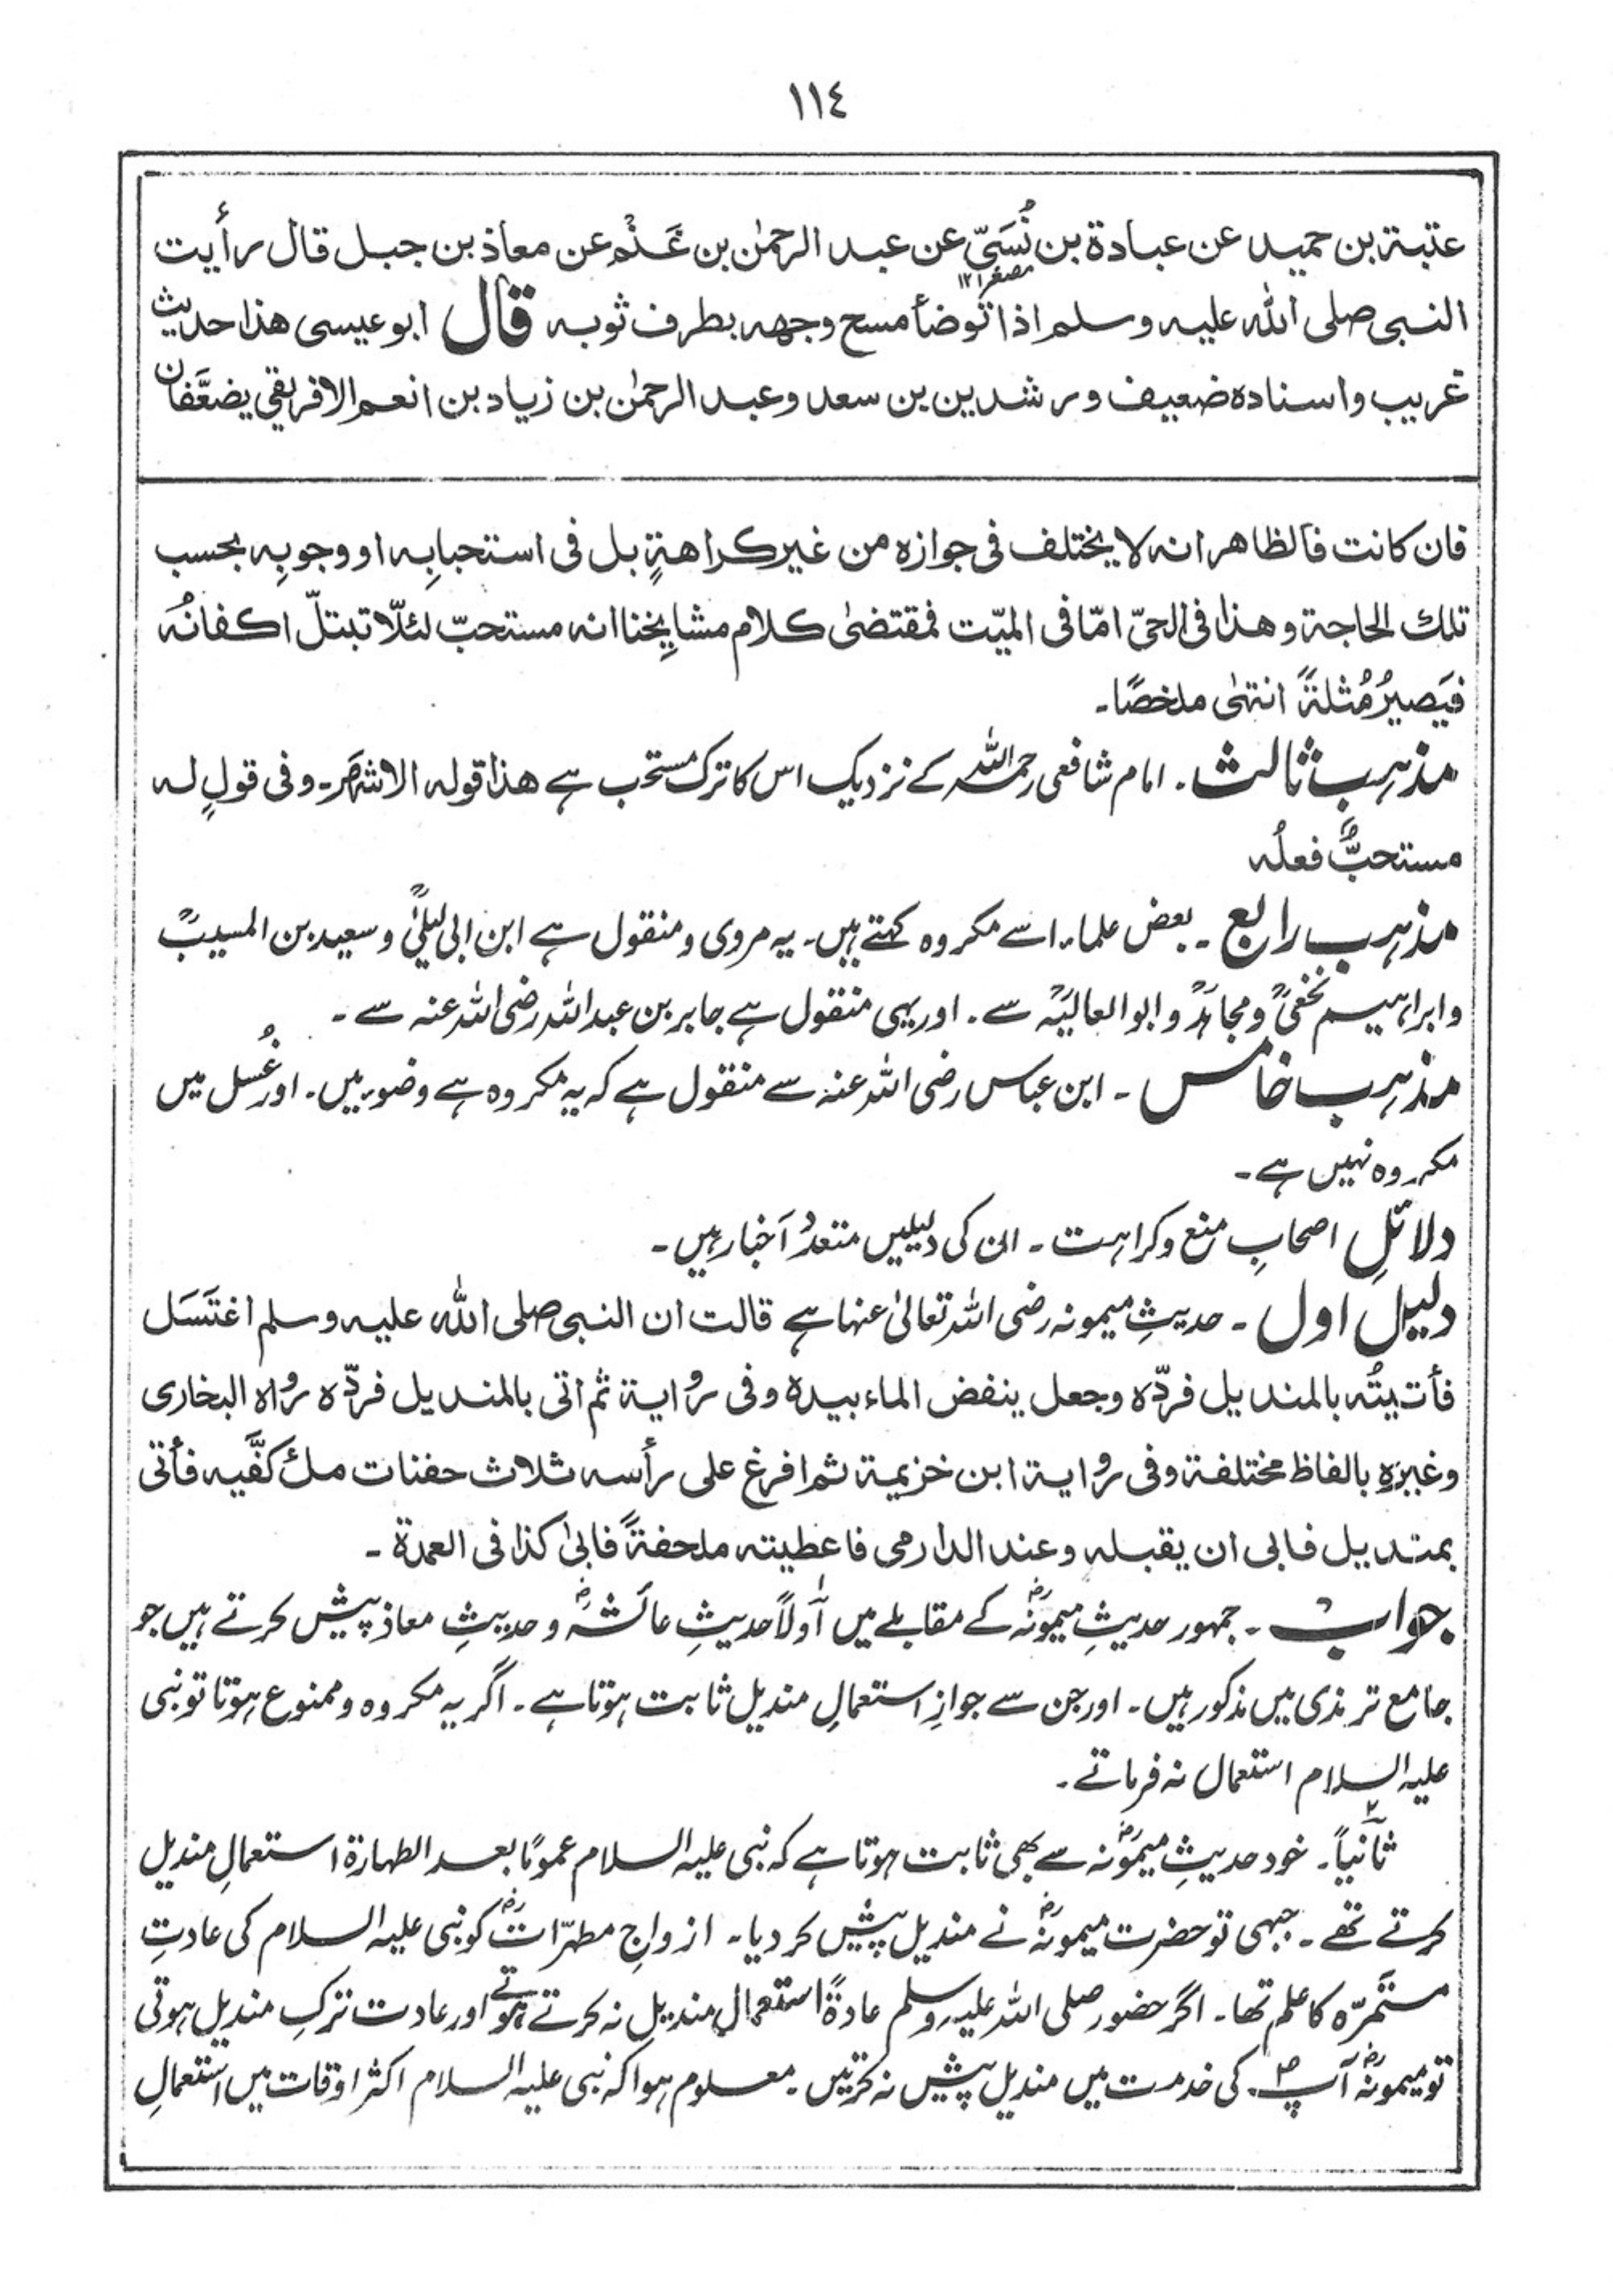 ١١٤
عتبة بن حميد عن عبادة بن نُسَيّ عن عبد الرحمٰن بن غَنْم عن معاذ بن جبل قال رأيت
مصغرا ١٢
النبي صلى الله عليه وسلم اذا توضأ مسح وجهه بطرف ثوبه قال ابو عيسى هذا حديث
غريب واسناده ضعيف ورشدين بن سعد وعبد الرحمٰن بن زياد بن انعم الافريقي يضعَّفان
فان كانت فالظاهر انه لا يختلف فى جوازه من غير كراهةٍ بل فى استحبابِه او وجوبِه بحسب
تلك الحاجة وهذا فى الحيّ امّا فى الميّت فمقتضىٰ كلام مشايخنا انه مستحبّ لئلّا تبتلّ اكفانُه
فيَصيرُ مُثلةً انتهٰى ملخصًا۔
مذہب ثالث۔ امام شافعی رحمہ اللہ کے نزدیک اس کا ترک مستحب ہے هذا قوله الاشهَر۔ وفى قولٍ له
مستحبٌّ فعلُه
مذہب رابع۔ بعض علماء اسے مکروہ کہتے ہیں۔ یہ مروی و منقول ہے ابن ابی لیلیٰؒ و سعید بن المسیبؒ
و ابراہیم نخعیؒ و مجاہدؒ و ابو العالیہؒ سے۔ اور یہی منقول ہے جابر بن عبد اللہ رضی اللہ عنہ سے۔
مذہب خامس۔ ابن عباس رضی اللہ عنہ سے منقول ہے کہ یہ مکروہ ہے وضوء میں۔ اور غُسل میں
مکروہ نہیں ہے۔
دلائلِ اصحابِ منع وکراہت۔ ان کی دلیلیں متعدد اَخبار ہیں۔
دلیل اول۔ حدیثِ میمونہ رضی اللہ تعالیٰ عنہا ہے قالت ان النبى صلى الله عليه وسلم اغتَسَل
فأتيتُه بالمنديل فردّه وجعل ينفض الماء بيده وفى رواية ثم اتى بالمنديل فردّه رواه البخارى
وغيره بالفاظ مختلفة وفى رواية ابن خزيمة ثم افرغ على رأسه ثلاث حفنات ملئ كفَّيه فأتى
بمنديل فابى ان يقبله وعند الدارمى فاعطيته ملحفةً فابىٰ كذا فى العمدة۔
جواب۔ جمہور حدیثِ میمونہؓ کے مقابلے میں اَوّلاً حدیثِ عائشہؓ و حدیثِ معاذ پیش کرتے ہیں جو
جامع ترمذی میں مذکور ہیں۔ اور جن سے جوازِ استعمالِ مندیل ثابت ہوتا ہے۔ اگر یہ مکروہ و ممنوع ہوتا تو نبی
علیہ السلام استعمال نہ فرماتے۔
ثانیاً۔ خود حدیثِ میمونہؓ سے بھی ثابت ہوتا ہے کہ نبی علیہ السلام عمومًا بعد الطہارۃ استعمالِ مندیل
کرتے تھے۔ جبھی تو حضرت میمونہؓ نے مندیل پیش کر دیا۔ ازواجِ مطہّراتؓ کو نبی علیہ السلام کی عادتِ
مستمرّہ کا علم تھا۔ اگر حضور صلی اللہ علیہ وسلم عادۃً استعمالِ مندیل نہ کرتے ہوتے اور عادت ترکِ مندیل ہوتی
تو میمونہؓ آپؐ کی خدمت میں مندیل پیش نہ کرتیں۔ معلوم ہوا کہ نبی علیہ السلام اکثر اوقات میں استعمالِ